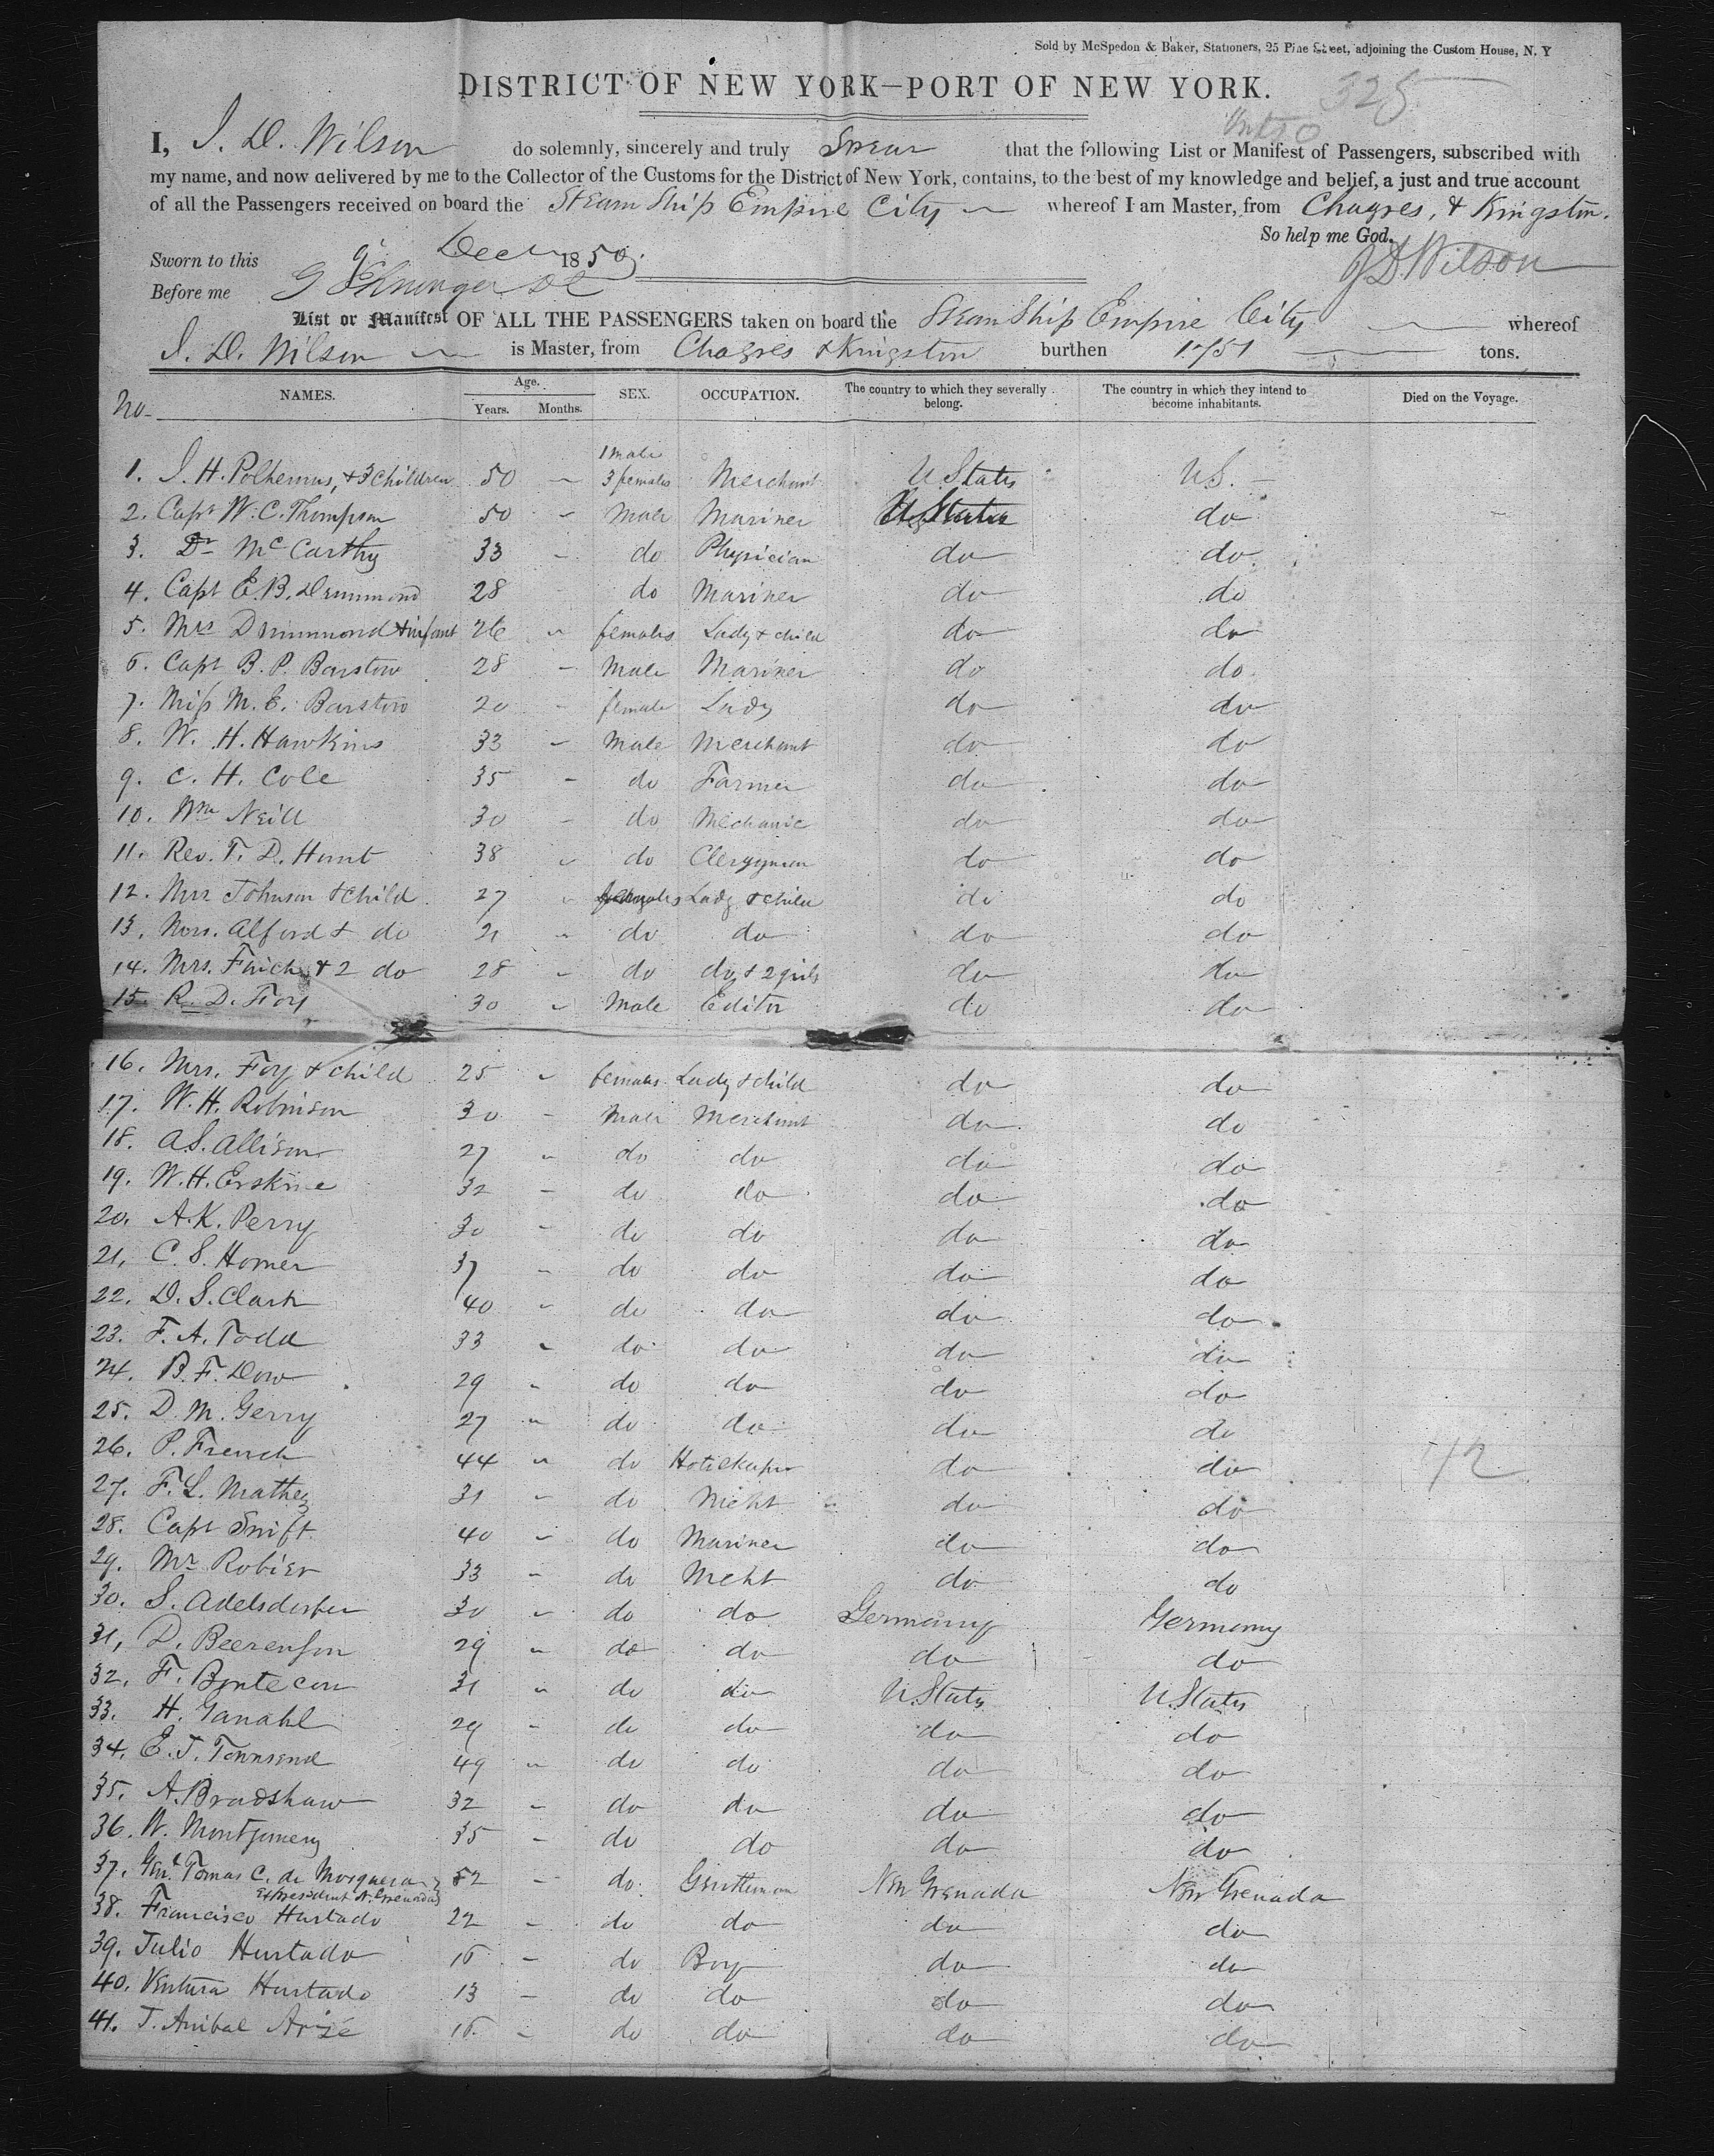 Sold by McSpedon & Baker, Stationers, 25 Pine Street, adjoining the Custom House, N. Y
DISTRICT OF NEW YORK—PORT OF NEW YORK.
325
I, J. D. Wilson do solemnly, sincerely and truly Swear that the following List or Manifest of Passengers, subscribed with
my name, and now delivered by me to the Collector of the Customs for the District of New York, contains, to the best of my knowledge and belief, a just and true account
of all the Passengers received on board the Steam Ship Empire City whereof I am Master, from Chagres, & Kingston.
So help me God.
Sworn to this 9 Decr 1850. J D Wilson
Before me
List or Manifest OF ALL THE PASSENGERS taken on board the Steam Ship Empire City whereof
J. D. Wilson is Master, from Chagres & Kingston burthen 1751 tons.
No. NAMES. Age. Years. Months. SEX. OCCUPATION. The country to which they severally belong. The country in which they intend to become inhabitants. Died on the Voyage.
1. J. H. Polhemus, & 3 children 50 1 male 3 females Merchant U States U S.
2. Capt W. C. Thompson 50 Male Mariner U States do
3. Dr McCarthy 33 do Physician do do
4. Capt E. B. Drummond 28 do Mariner do do
5. Mrs Drummond & infant 26 females Lady & child do do
6. Capt B. P. Barstow 28 Male Mariner do do
7. Miss M. E. Barstow 20 female Lady do do
8. W. H. Hawkins 33 Male Merchant do do
9. C. H. Cole 35 do Farmer do do
10. Wm Neill 30 do Mechanic do do
11. Rev. T. D. Hunt 38 do Clergyman do do
12. Mrs Johnson & child 27 females Lady & child do do
13. Mrs. Alford & do 21 do do do do
14. Mrs. Finch & 2 do 28 do do & 2 girls do do
15. R. D. Foy 30 Male Editor do do
16. Mrs. Foy & child 25 females Lady & child do do
17. W. H. Robinson 30 Male Merchant do do
18. A. S. Allison 27 do do do do
19. W. H. Erskine 32 do do do do
20. A. K. Perry 30 do do do do
21. C. S. Homer 37 do do do do
22. D. S. Clark 40 do do do do
23. F. A. Todd 33 do do do do
24. B. F. Dow 29 do do do do
25. D. M. Gerry 27 do do do do
26. P. French 44 do Hotelkeeper do do 42
27. F. L. Mathez 31 do Mcht do do
28. Capt Swift 40 do Mariner do do
29. Mr Robier 33 do Mcht do do
30. S. Adelsdorfer 30 do do Germany Germany
31. D. Beerenson 29 do do do do
32. F. Bontecou 31 do do U. States U. States
33. H. Ganahl 29 do do do do
34. E. J. Townsend 49 do do do do
35. A. Bradshaw 32 do do do do
36. W. Montgomery 35 do do do do
37. Genl. Tomas C. de Mosquera 52 do Gentleman New Grenada New Grenada
Ex President N. Grenada
38. Francisco Hurtado 22 do do do do
39. Julio Hurtado 15 do Boy do do
40. Ventura Hurtado 13 do do do do
41. J. Anibal 15 do do do do